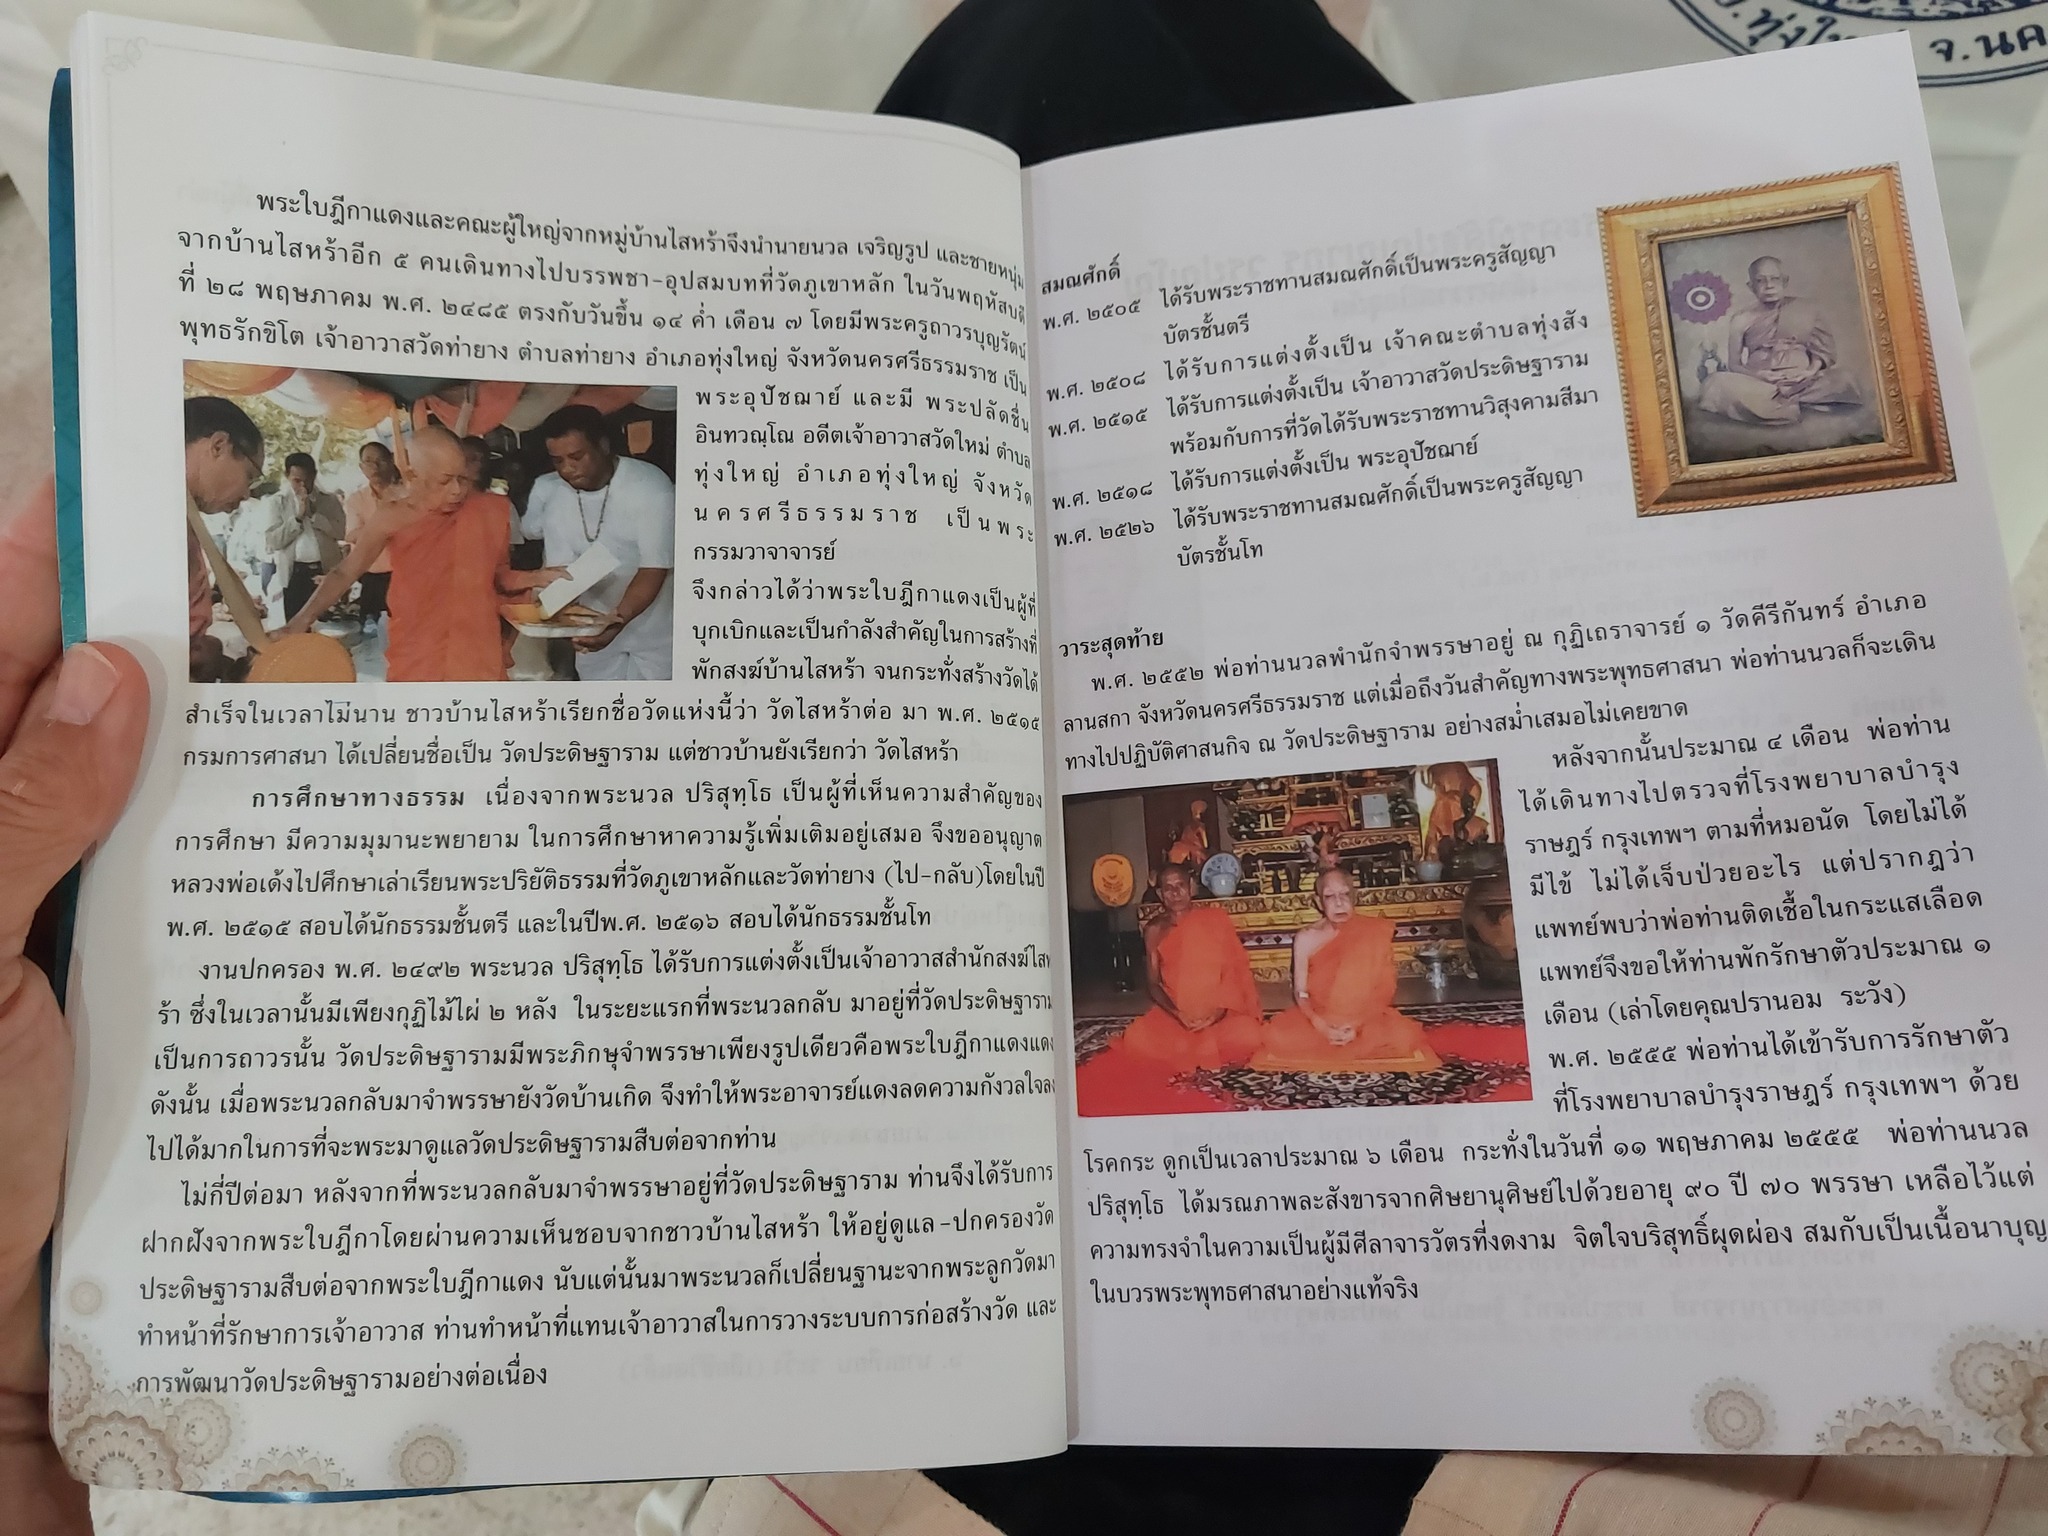 พระใบฎีกาแดงและคณะผู้ใหญ่จากหมู่บ้านไสหร้าจึงนำนายนวล เจริญรูป และชายหนุ่ม
จากบ้านไสหร้าอีก ๕ คนเดินทางไปบรรพชา-อุปสมบทที่วัดภูเขาหลัก ในวันพฤหัสบดี
ที่ ๒๘ พฤษภาคม พ.ศ. ๒๔๘๕ ตรงกับวันขึ้น ๑๔ ค่ำ เดือน ๗ โดยมีพระครูถาวรบุญรัตน์
พุทธรักขิโต เจ้าอาวาสวัดท่ายาง ตำบลท่ายาง อำเภอทุ่งใหญ่ จังหวัดนครศรีธรรมราช เป็น
พระอุปัชฌาย์ และมี พระปลัดชื่น
อินทวณฺโณ อดีตเจ้าอาวาสวัดใหม่ ตำบล
ทุ่งใหญ่ อำเภอทุ่งใหญ่ จังหวัด
นครศรีธรรมราช เป็นพระ
กรรมวาจาจารย์
จึงกล่าวได้ว่าพระใบฎีกาแดงเป็นผู้ที่
บุกเบิกและเป็นกำลังสำคัญในการสร้างที่
พักสงฆ์บ้านไสหร้า จนกระทั่งสร้างวัดได้
สำเร็จในเวลาไม่นาน ชาวบ้านไสหร้าเรียกชื่อวัดแห่งนี้ว่า วัดไสหร้าต่อ มา พ.ศ. ๒๕๑๕
กรมการศาสนา ได้เปลี่ยนชื่อเป็น วัดประดิษฐาราม แต่ชาวบ้านยังเรียกว่า วัดไสหร้า
การศึกษาทางธรรม เนื่องจากพระนวล ปริสุทฺโธ เป็นผู้ที่เห็นความสำคัญของ
การศึกษา มีความมุมานะพยายาม ในการศึกษาหาความรู้เพิ่มเติมอยู่เสมอ จึงขออนุญาต
หลวงพ่อเด้งไปศึกษาเล่าเรียนพระปริยัติธรรมที่วัดภูเขาหลักและวัดท่ายาง (ไป-กลับ)โดยในปี
พ.ศ. ๒๕๑๕ สอบได้นักธรรมชั้นตรี และในปีพ.ศ. ๒๕๑๖ สอบได้นักธรรมชั้นโท
งานปกครอง พ.ศ. ๒๔๙๒ พระนวล ปริสุทฺโธ ได้รับการแต่งตั้งเป็นเจ้าอาวาสสำนักสงฆ์ไสห
ร้า ซึ่งในเวลานั้นมีเพียงกุฏิไม้ไผ่ ๒ หลัง ในระยะแรกที่พระนวลกลับ มาอยู่ที่วัดประดิษฐาราม
เป็นการถาวรนั้น วัดประดิษฐารามมีพระภิกษุจำพรรษาเพียงรูปเดียวคือพระใบฎีกาแดงแดง
ดังนั้น เมื่อพระนวลกลับมาจำพรรษายังวัดบ้านเกิด จึงทำให้พระอาจารย์แดงลดความกังวลใจลง
ไปได้มากในการที่จะพระมาดูแลวัดประดิษฐารามสืบต่อจากท่าน
ไม่กี่ปีต่อมา หลังจากที่พระนวลกลับมาจำพรรษาอยู่ที่วัดประดิษฐาราม ท่านจึงได้รับการ
ฝากฝังจากพระใบฎีกาโดยผ่านความเห็นชอบจากชาวบ้านไสหร้า ให้อยู่ดูแล-ปกครองวัด
ประดิษฐารามสืบต่อจากพระใบฎีกาแดง นับแต่นั้นมาพระนวลก็เปลี่ยนฐานะจากพระลูกวัดมา
ทำหน้าที่รักษาการเจ้าอาวาส ท่านทำหน้าที่แทนเจ้าอาวาสในการวางระบบการก่อสร้างวัด และ
การพัฒนาวัดประดิษฐารามอย่างต่อเนื่อง
สมณศักดิ์
พ.ศ. ๒๕๐๕ ได้รับพระราชทานสมณศักดิ์เป็นพระครูสัญญา
บัตรชั้นตรี
พ.ศ. ๒๕๐๘ ได้รับการแต่งตั้งเป็น เจ้าคณะตำบลทุ่งสัง
พ.ศ. ๒๕๑๕ ได้รับการแต่งตั้งเป็น เจ้าอาวาสวัดประดิษฐาราม
พร้อมกับการที่วัดได้รับพระราชทานวิสุงคามสีมา
พ.ศ. ๒๕๑๘ ได้รับการแต่งตั้งเป็น พระอุปัชฌาย์
พ.ศ. ๒๕๒๖ ได้รับพระราชทานสมณศักดิ์เป็นพระครูสัญญา
บัตรชั้นโท
วาระสุดท้าย
พ.ศ. ๒๕๕๒ พ่อท่านนวลพำนักจำพรรษาอยู่ ณ กุฏิเถราจารย์ ๑ วัดคีรีกันทร์ อำเภอ
ลานสกา จังหวัดนครศรีธรรมราช แต่เมื่อถึงวันสำคัญทางพระพุทธศาสนา พ่อท่านนวลก็จะเดิน
ทางไปปฏิบัติศาสนกิจ ณ วัดประดิษฐาราม อย่างสม่ำเสมอไม่เคยขาด
หลังจากนั้นประมาณ ๔ เดือน พ่อท่าน
ได้เดินทางไปตรวจที่โรงพยาบาลบำรุง
ราษฎร์ กรุงเทพฯ ตามที่หมอนัด โดยไม่ได้
มีไข้ ไม่ได้เจ็บป่วยอะไร แต่ปรากฏว่า
แพทย์พบว่าพ่อท่านติดเชื้อในกระแสเลือด
แพทย์จึงขอให้ท่านพักรักษาตัวประมาณ ๑
เดือน (เล่าโดยคุณปรานอม ระวัง)
พ.ศ. ๒๕๕๕ พ่อท่านได้เข้ารับการรักษาตัว
ที่โรงพยาบาลบำรุงราษฎร์ กรุงเทพฯ ด้วย
โรคกระ ดูกเป็นเวลาประมาณ ๖ เดือน กระทั่งในวันที่ ๑๑ พฤษภาคม ๒๕๕๕ พ่อท่านนวล
ปริสุทฺโธ ได้มรณภาพละสังขารจากศิษยานุศิษย์ไปด้วยอายุ ๙๐ ปี ๗๐ พรรษา เหลือไว้แต่
ความทรงจำในความเป็นผู้มีศีลาจารวัตรที่งดงาม จิตใจบริสุทธิ์ผุดผ่อง สมกับเป็นเนื้อนาบุญ
ในบวรพระพุทธศาสนาอย่างแท้จริง